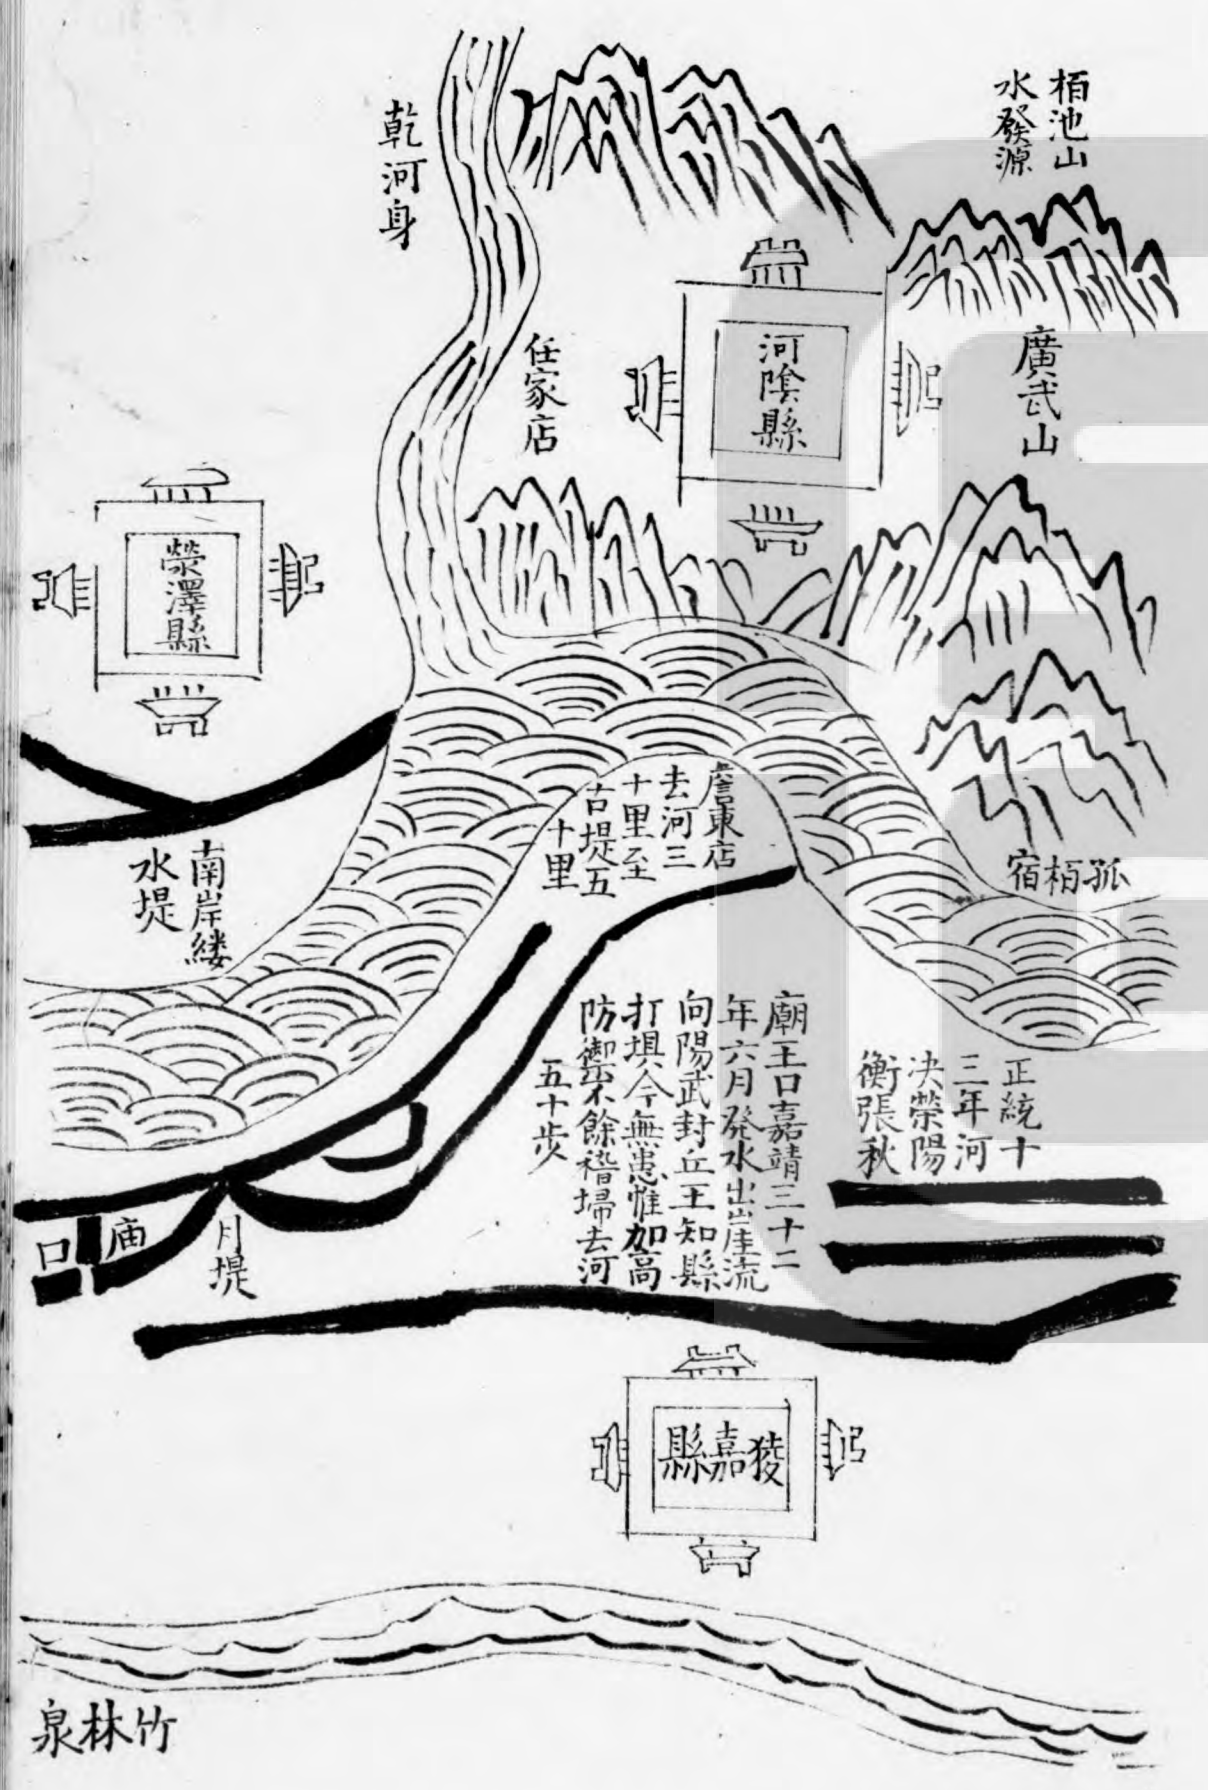 栢池山
水發源
廣武山
孤栢宿
河陰縣
任家店
乾河身
滎澤縣
詹東店
去河三
十里至
古堤五
十里
南岸縷
水堤
正統十
三年河
決滎陽
衡張秋
廟王口嘉靖三十二
年六月發水出崖流
向陽武封丘王知縣
打埧今無患惟加高
防禦不餘稭埽去河
五十步
月堤
庙
口
獲嘉縣
竹林泉